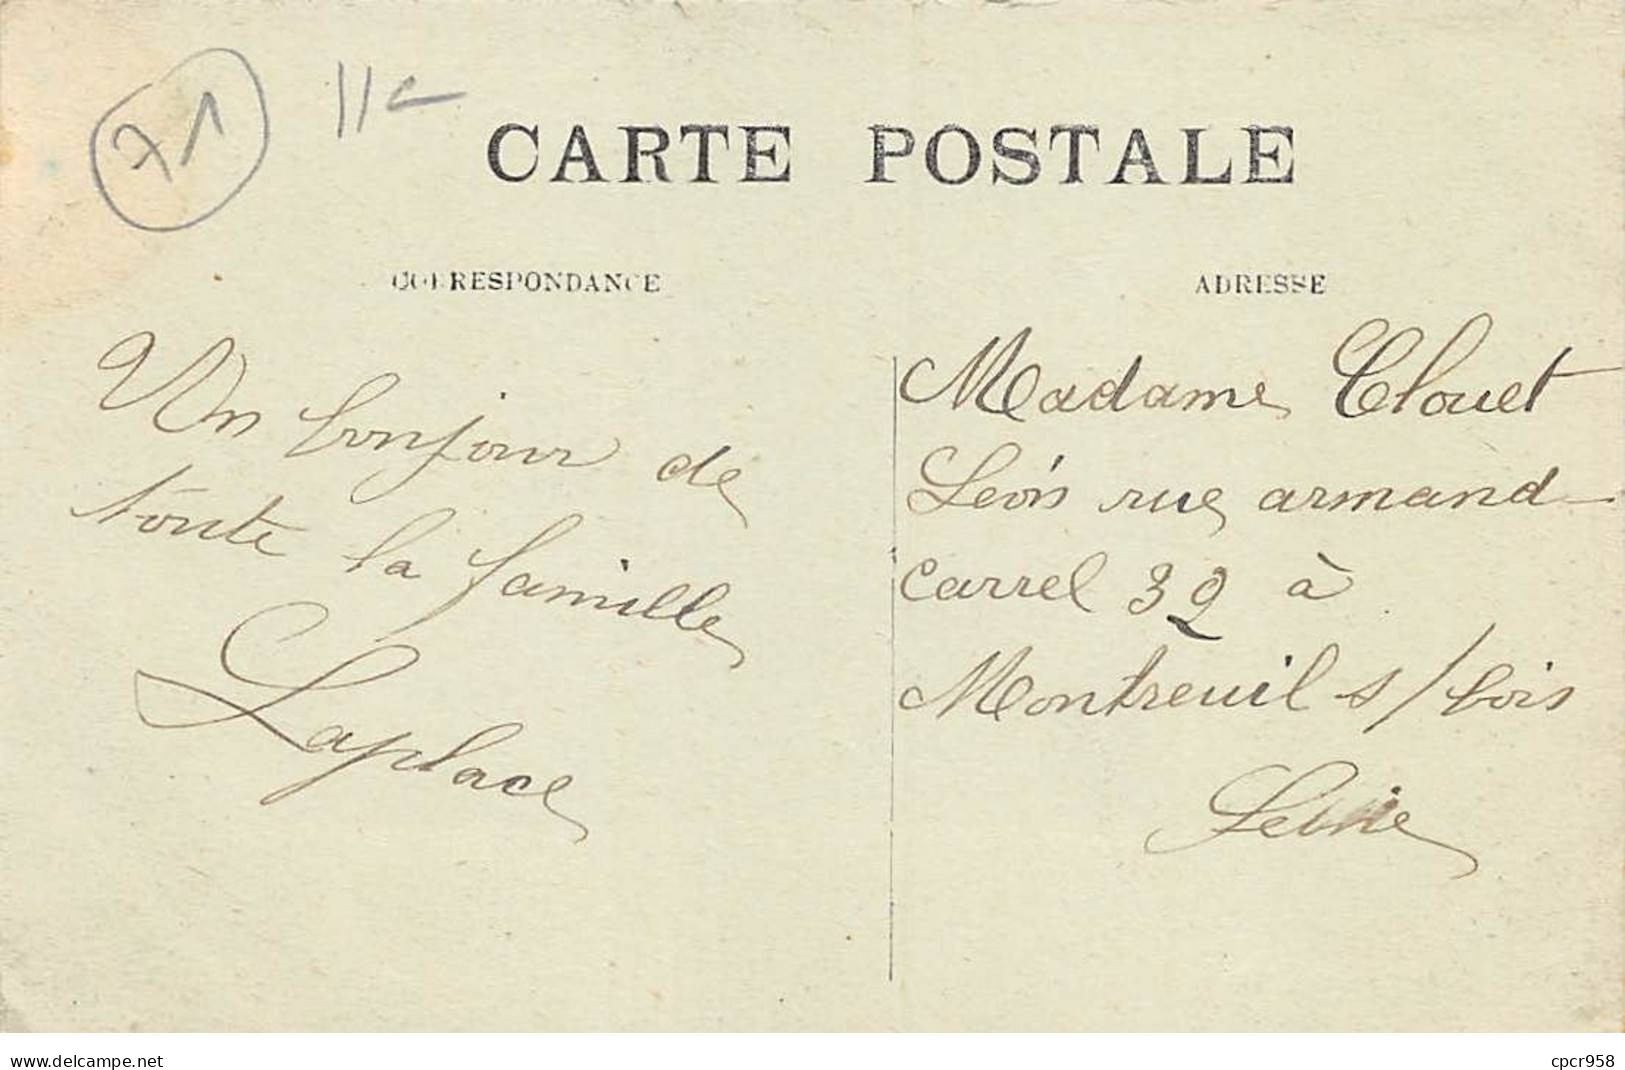 71 11€
CARTE POSTALE
CORRESPONDANCE
ADRESSE
Un bonjour de
toute la famille
Laplace
Madame Clouet
Léon rue armand
Carrel 32 à
Montreuil s/bois
Seine
www.delcampe.net
cpcr958